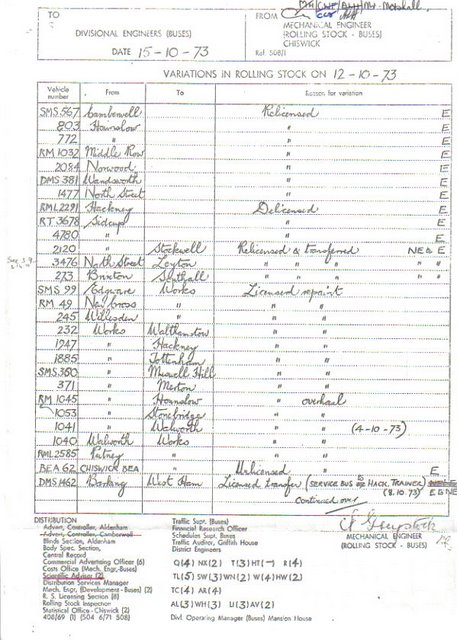 TO
DIVISIONAL ENGINEERS (BUSES)
DATE 15-10-73
FROM
MECHANICAL ENGINEER
(ROLLING STOCK - BUSES)
CHISWICK
Ref. 508/1
VARIATIONS IN ROLLING STOCK ON 12-10-73
Vehicle number From To Reason for variation
SMS 567 Camberwell Relicensed E
803 Hounslow " E
772 " " E
RM 1032 Middle Row " E
2084 Norwood " E
DMS 381 Wandsworth " E
1477 North Street " E
RML 2291 Hackney Delicensed E
RT 3678 Sidcup " E
4780 " " E
2120 " Stockwell Relicensed & transferred NE & E
3476 North Street Leyton " " " " "
273 Brixton Southall " " " " "
SMS 99 Edgware Works Licensed repaint
RM 49 New Cross " " "
245 Willesden " " "
232 Works Walthamstow " "
1947 " Hackney " "
1885 " Tottenham " "
SMS 360 " Muswell Hill " "
371 " Merton " "
RM 1045 " Hounslow " overhaul
1053 " Stonebridge " "
1041 " Walworth " " (4-10-73)
1040 Walworth Works " "
RML 2585 Putney " " "
BEA 62 CHISWICK BEA " Unlicensed " E
DMS 1462 Barking West Ham Licensed transfer (SERVICE BUS TRAINER)
(8.10.73) E & NE
Continued over
DISTRIBUTION
Advert. Controller, Aldenham
Advert. Controller, Camberwell
Blinds Section, Aldenham
Body Spec. Section,
Central Record
Commercial Advertising Officer (6)
Costs Office (Mech. Engr.-Buses)
Scientific Adviser (2)
Distribution Services Manager
Mech. Engr. (Development - Buses) (2)
R. S. Licensing Section (6)
Rolling Stock Inspection
Statistical Office - Chiswick (2)
408/69 (1) (504 6/71 508)
Traffic Supt. (Buses)
Financial Research Officer
Schedules Supt. Buses
Traffic Auditor, Griffith House
District Engineers
Q(4) NX(2) T(3) HT(-) R(4)
TL(5) SW(3) WN(2) W(4) HW(2)
TC(4) AR(4)
AL(3) WH(3) U(3) AV(2)
Divl. Operating Manager (Buses) Mansion House
MECHANICAL ENGINEER
(ROLLING STOCK - BUSES)